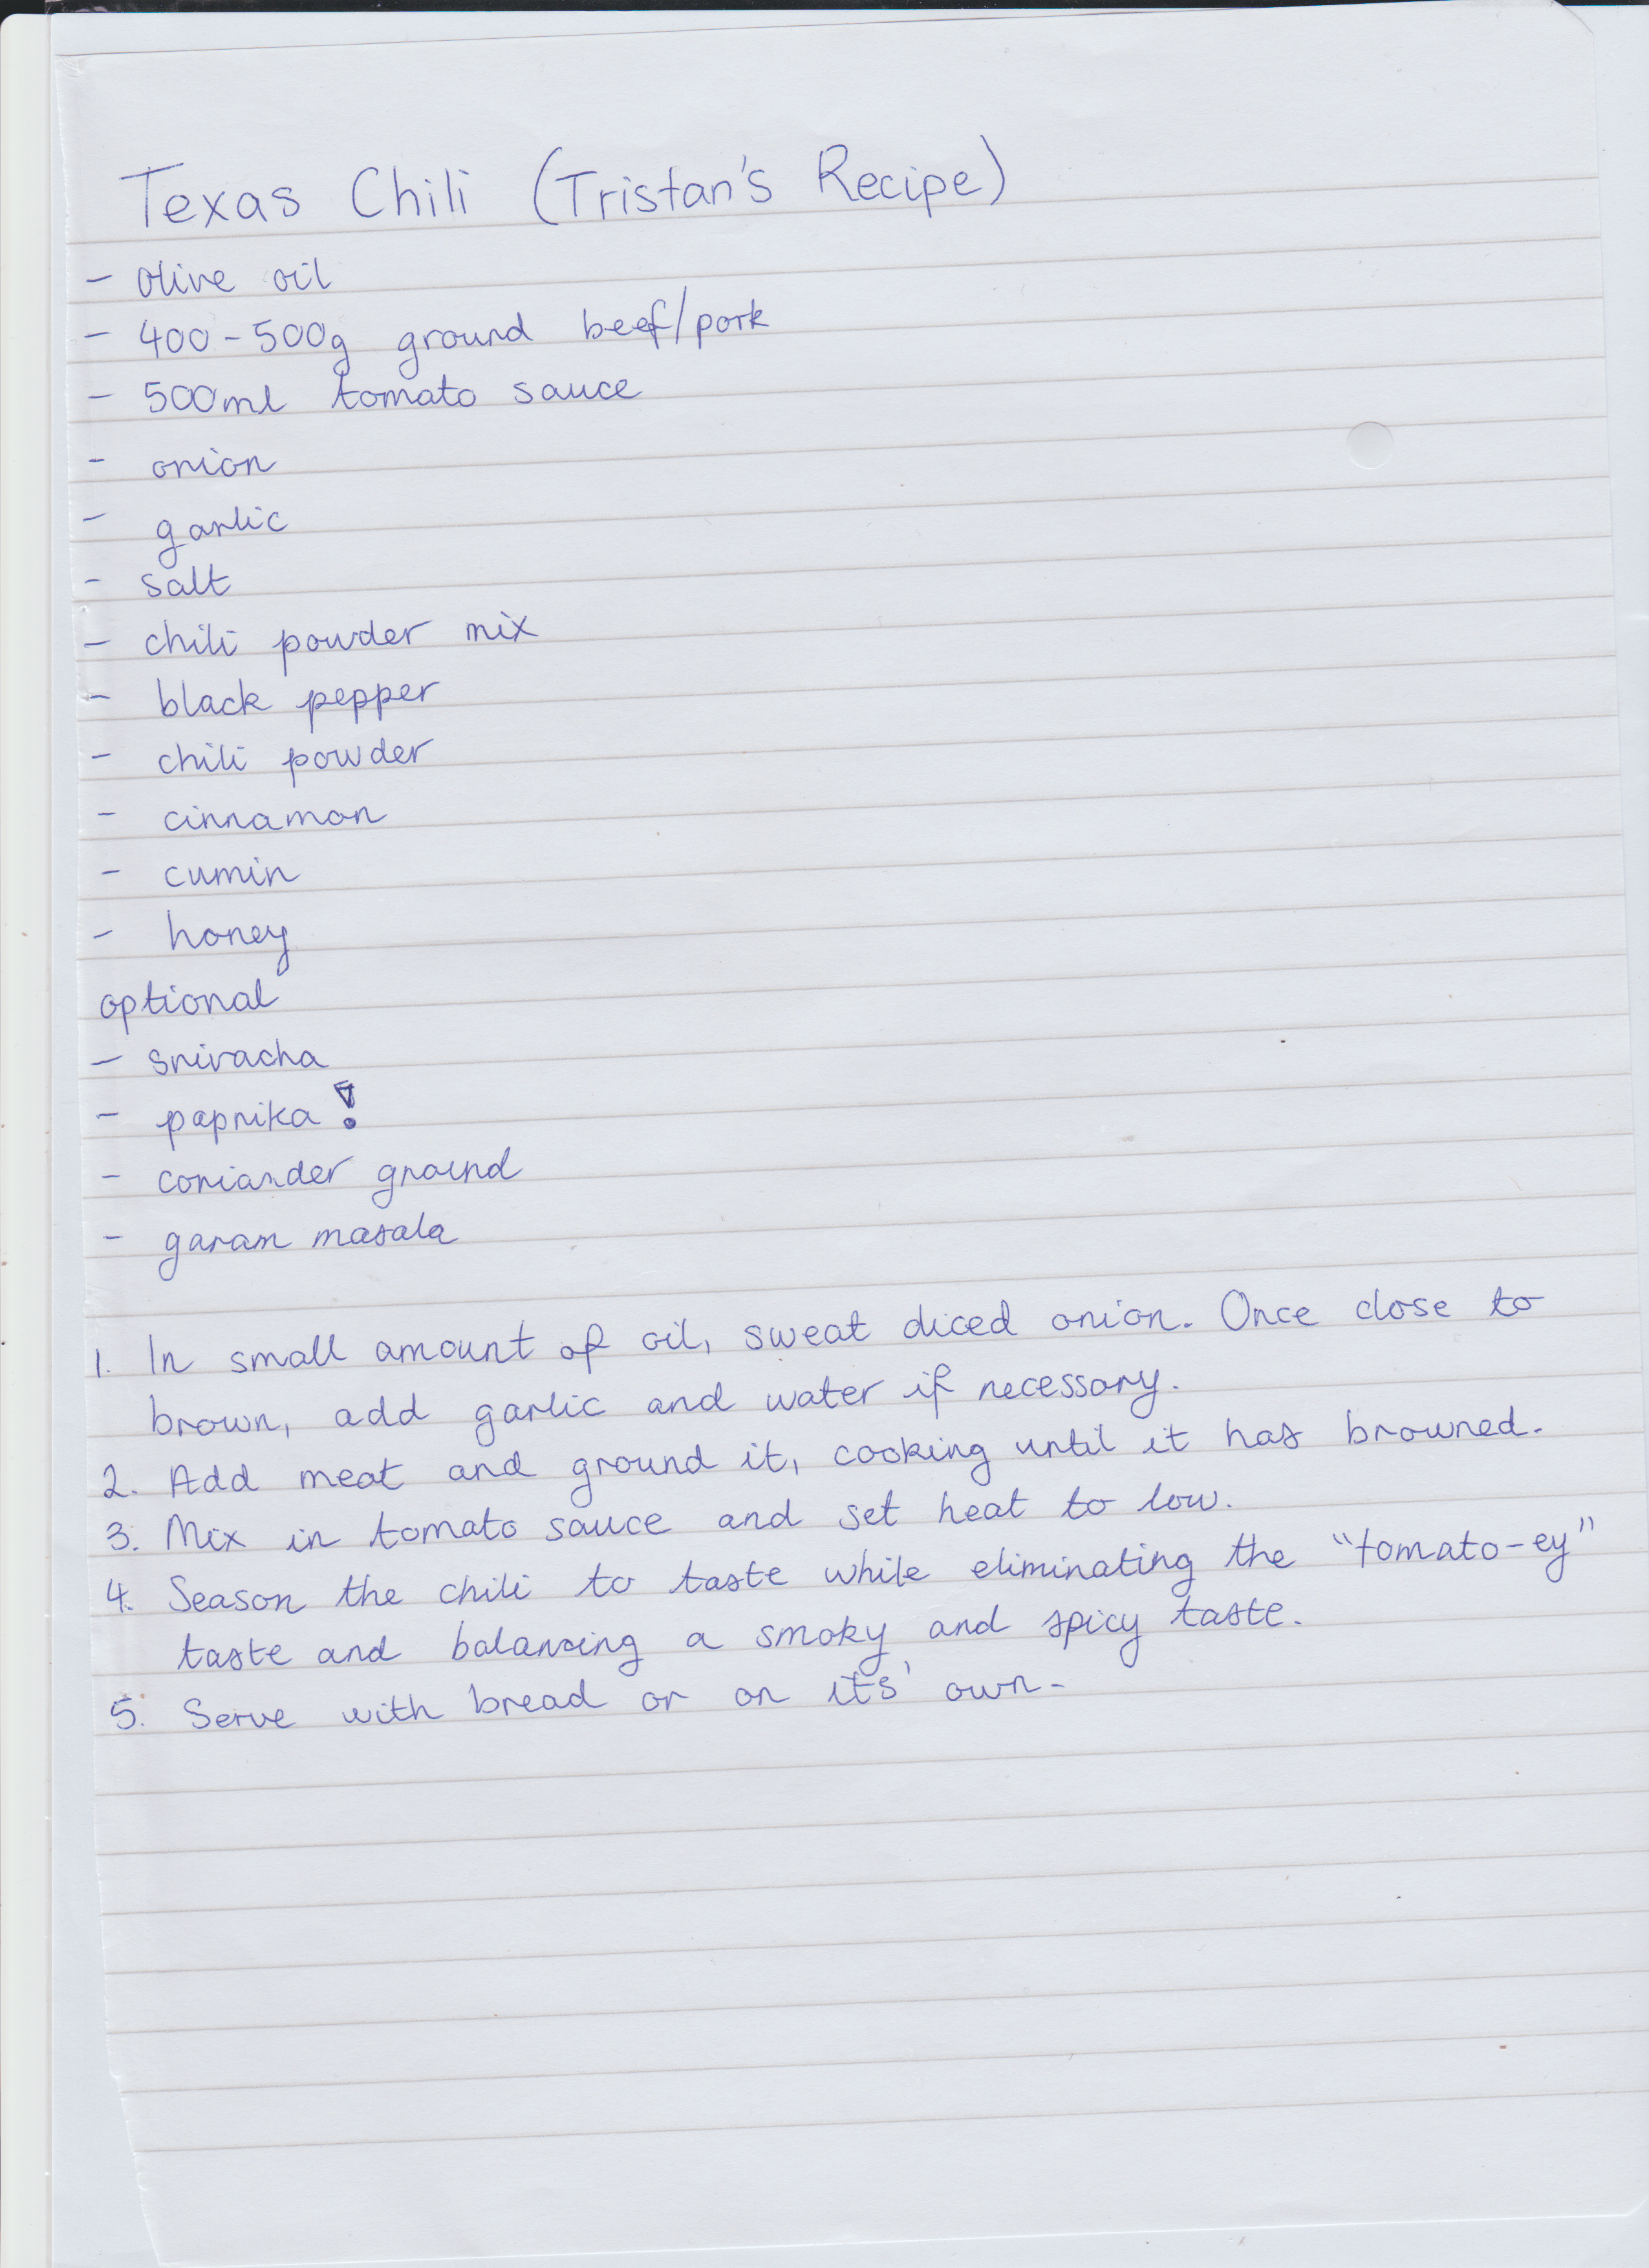 Texas Chili (Tristan's Recipe)
- Olive oil
- 400-500g ground beef/pork
- 500ml tomato sauce
- onion
- garlic
- salt
- chili powder mix
- black pepper
- chili powder
- cinnamon
- cumin
- honey
optional
- sriracha
- paprika!
- coriander ground
- garam masala
1. In small amount of oil, sweat diced onion. Once close to
brown, add garlic and water if necessary.
2. Add meat and ground it, cooking until it has browned.
3. Mix in tomato sauce and set heat to low.
4. Season the chili to taste while eliminating the "tomato-ey"
taste and balancing a smoky and spicy taste.
5. Serve with bread or on its' own.